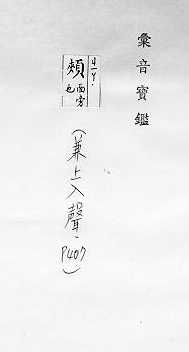 彙音寶鑑
頰 面旁也
(兼上入聲. P407)